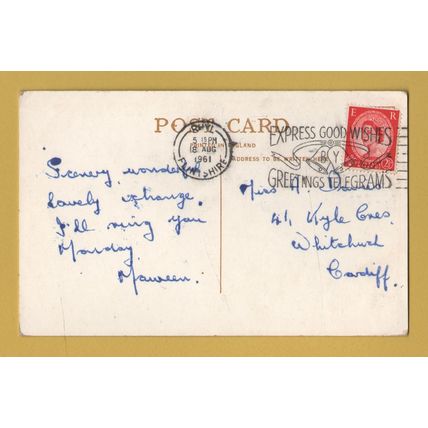 POST CARD
PRINTED IN ENGLAND
ADDRESS TO BE WRITTEN HERE
RHYL
5 15 PM
18 AUG
1961
FLINTSHIRE
EXPRESS GOOD WISHES
BY
GREETINGS TELEGRAMS
E R
Scenery wonder
Lovely change.
I'll ring you
Monday.
Maureen.
Miss
41, Kyle Cres.
Whitchurch
Cardiff.